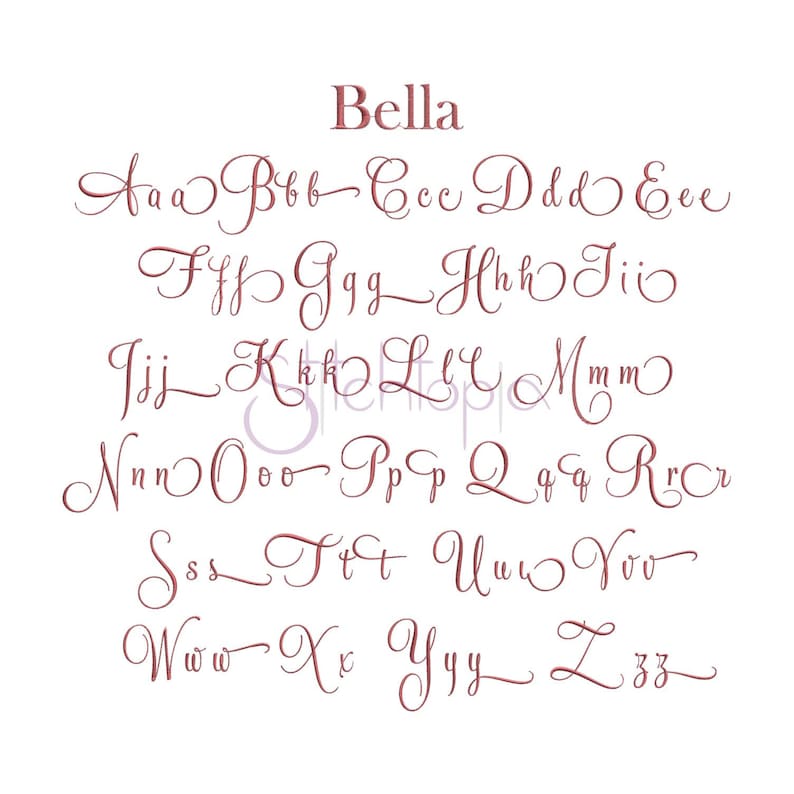 Bella
Aaa Bbb Ccc Ddd Eee
Fff Ggg Hhh Iii
Jjj Kkk Lll Mmm
Stitchtopia
Nnn Ooo Ppp Qqq Rrr
Sss Ttt Uuu Vvv
Www Xx Yyy Zzz